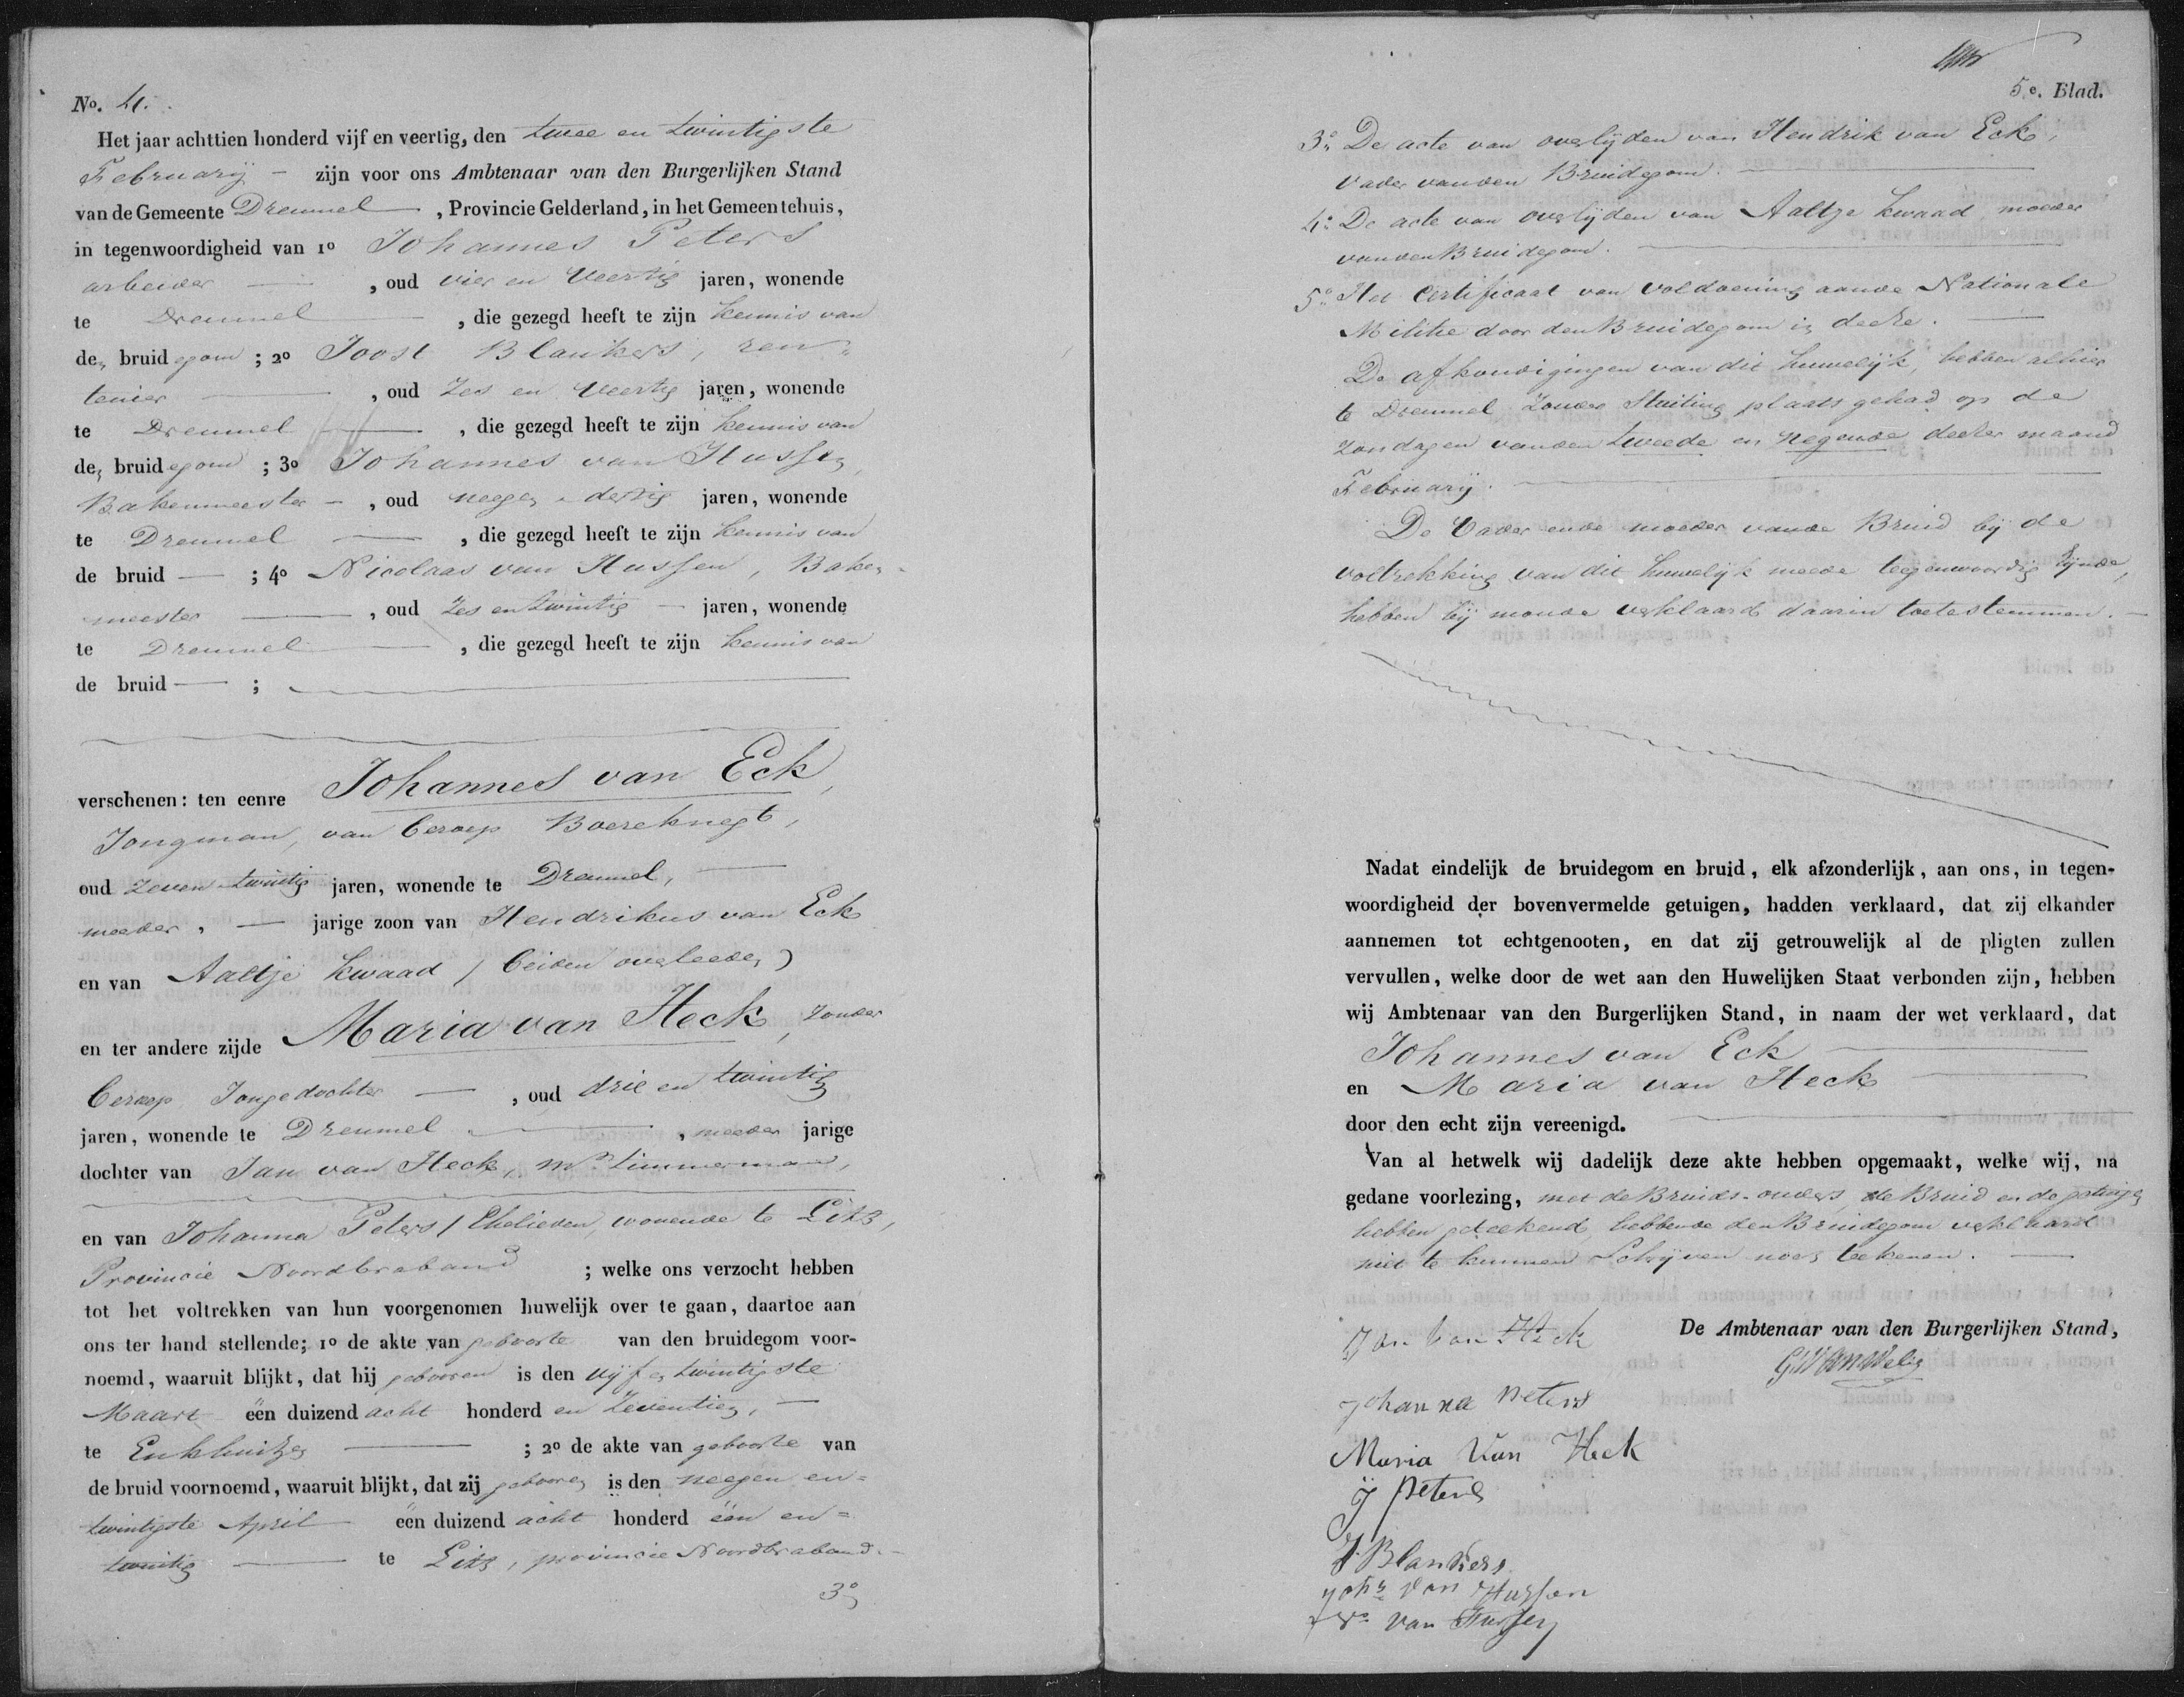 No. 4.
Het jaar achttien honderd vijf en veertig, den twee en twintigste
February – zijn voor ons Ambtenaar van den Burgerlijken Stand
van de Gemeente Dreumel , Provincie Gelderland, in het Gemeentehuis,
in tegenwoordigheid van 1o Johannes Peters
arbeider , oud vier en veertig jaren, wonende
te Dreumel , die gezegd heeft te zijn kennis van
den bruidegom ; 2o Joost Blankers, ren-
tenier , oud Zes en veertig jaren, wonende
te Dreumel , die gezegd heeft te zijn kennis van
den bruidegom ; 3o Johannes van Hussen,
Bakenmeester – , oud negen dertig jaren, wonende
te Dreumel , die gezegd heeft te zijn kennis van
de bruid — ; 4o Nicolaas van Hussen, Baken-
meester , oud Zes en twintig – jaren, wonende
te Dreumel , die gezegd heeft te zijn kennis van
de bruid — ;
verschenen: ten eenre Johannes van Eck,
Jongman, van beroep Boereknegt,
oud Zeven twintig jaren, wonende te Dreumel,
meeder, — jarige zoon van Hendrikus van Eck
en van Aaltje Kwaad / beiden overleeden)
en ter andere zijde Maria van Heck, zonder
beroep Jongedochter — , oud drie en twintig
jaren, wonende te Dreumel , meeder jarige
dochter van Jan van Heck, mr. timmerman,
en van Johanna Peters / Ehelieden, wonende te Lith,
Provincie Noordbraband ; welke ons verzocht hebben
tot het voltrekken van hun voorgenomen huwelijk over te gaan, daartoe aan
ons ter hand stellende; 1o de akte van geboorte van den bruidegom voor-
noemd, waaruit blijkt, dat hij gebooren is den vijfen twintigste
Maart één duizend acht honderd en Zeventien, –
te Enkhuitzen ; 2o de akte van geboorte van
de bruid voornoemd, waaruit blijkt, dat zij gebooren is den neegen en=
twintigste April één duizend acht honderd één en=
twintig te Lith, provincie Noordbraband. –
3o
5e. Blad.
3o De acte van overlijden van Hendrik van Eck,
vader van den Bruidegom.
4o De acte van overlijden van Aaltje Kwaad moeder
van den Bruidegom.
5o Het Certificaat van voldoening aan de Nationale
Militie door den Bruidegom in deeze.
De afkondigingen van dit huwelijk, hebben alhier
te Dreumel zonder stuiting plaats gehad op de
zondagen van den tweede en negende deezer maand
February.
De Vader en de moeder van de Bruid bij de
voltrekking van dit huwelijk meede tegenwoordig zijnde,
hebben bij monde verklaard daarin toetestemmen. —
Nadat eindelijk de bruidegom en bruid, elk afzonderlijk, aan ons, in tegen-
woordigheid der bovenvermelde getuigen, hadden verklaard, dat zij elkander
aannemen tot echtgenooten, en dat zij getrouwelijk al de pligten zullen
vervullen, welke door de wet aan den Huwelijken Staat verbonden zijn, hebben
wij Ambtenaar van den Burgerlijken Stand, in naam der wet verklaard, dat
Johannes van Eck
en Maria van Heck
door den echt zijn vereenigd.
Van al hetwelk wij dadelijk deze akte hebben opgemaakt, welke wij, na
gedane voorlezing, met de Bruids-ouders, de Bruid en de getuigen
hebben geteekend, hebbende den Bruidegom verklaard
niet te kunnen Schrijven noch teekenen. —
De Ambtenaar van den Burgerlijken Stand,
Jan van Heck
Johanna Peters
Maria Van Heck
J Peters
J. Blankers
Johs van Hussen
Ns van Hussen